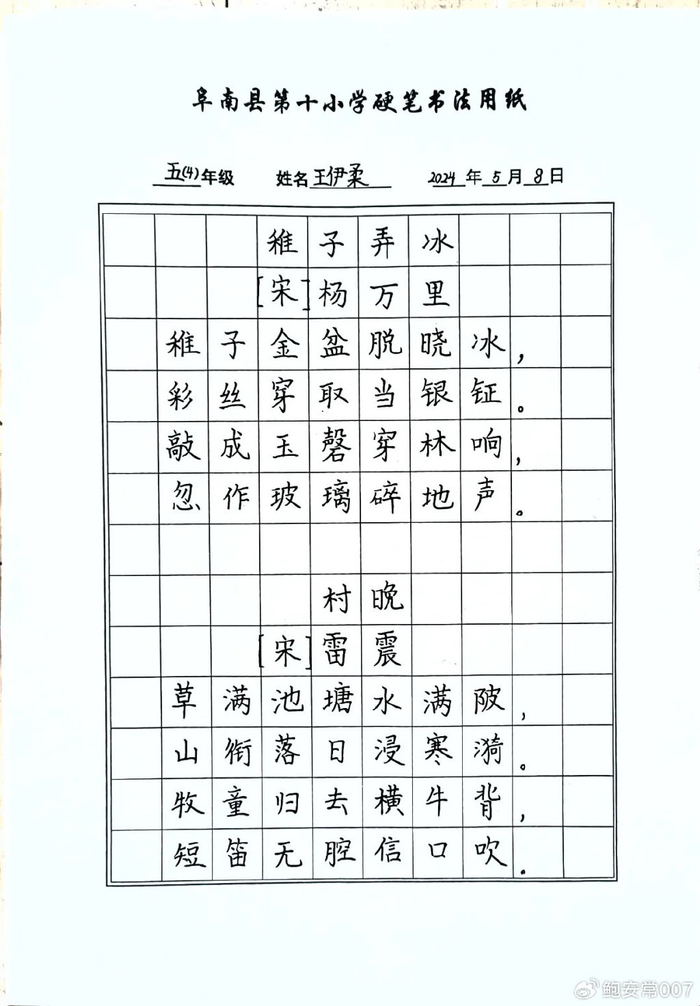 阜南县第十小学硬笔书法用纸
五(4)年级 姓名王伊柔 2024年5月8日
稚子弄冰
[宋]杨万里
稚子金盆脱晓冰，
彩丝穿取当银钲。
敲成玉磬穿林响，
忽作玻璃碎地声。
村晚
[宋]雷震
草满池塘水满陂，
山衔落日浸寒漪。
牧童归去横牛背，
短笛无腔信口吹。
@鲍安常007